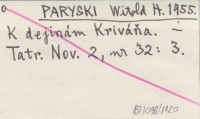 PARYSKI Witold H. 1955.
K dejinám Kriváňa. —
Tatr. Nov. 2, nr 32: 3.